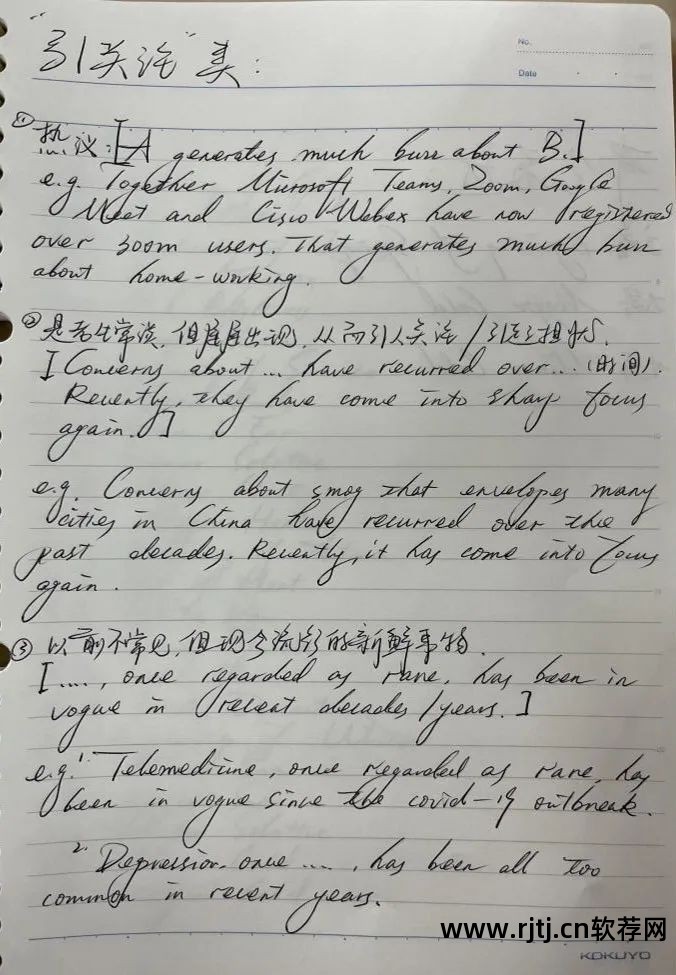 引关注"类:
No.
Date
① 热议:[A generates much buzz about B.]
e.g. Together Microsoft Teams, Zoom, Google
Meet and Cisco Webex have now registered
over 300m users. That generates much buzz
about home-working.
② 是老生常谈,但屡屡出现,从而引人关注/引起担忧.
[Concerns about ... have recurred over ... (时间).
Recently, they have come into sharp focus
again.]
e.g. Concerns about smog that envelopes many
cities in China have recurred over the
past decades. Recently, it has come into focus
again.
③ 以前不常见,但现今流行的新鲜事物.
[...., once regarded as rare, has been in
vogue in recent decades/years.]
e.g. 1. Telemedicine, once regarded as rare, has
been in vogue since the covid-19 outbreak.
2. Depression, once ...., has been all too
common in recent years.
www.rjtj.cn软荐网
KOKUYO